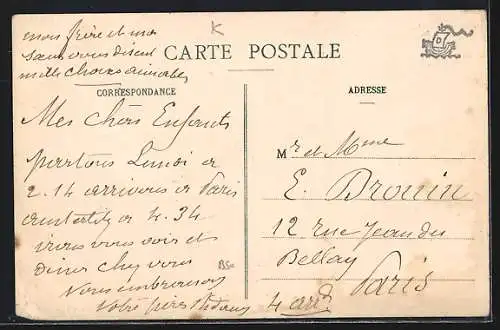 mon frère et ma
sœur vous disent
mille choses aimables
K
CARTE POSTALE
CORRESPONDANCE
ADRESSE
Mes chers Enfants
partons Lundi a
2.14 arrivons a Paris
a 4.34
irons vous voir et
Diner chez vous
Vous embrassons
Votre père
Mr et Mme
E. Brouin
12 rue Jean du
Bellay
Paris
4 arrd